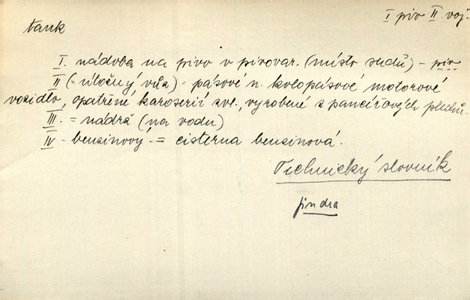 tank
I piv II voj.
I. nádoba na pivo v pivovar. (místo sudů) - piv
II (= útočný vůz) = pásové n. kolopásové motorové
vozidlo, opatřené karoserií zvl. vyrobené z pancířových plechů.
III. = nádrž (na vodu)
IV - benzinový = cisterna benzinová.
Technický slovník
jindra